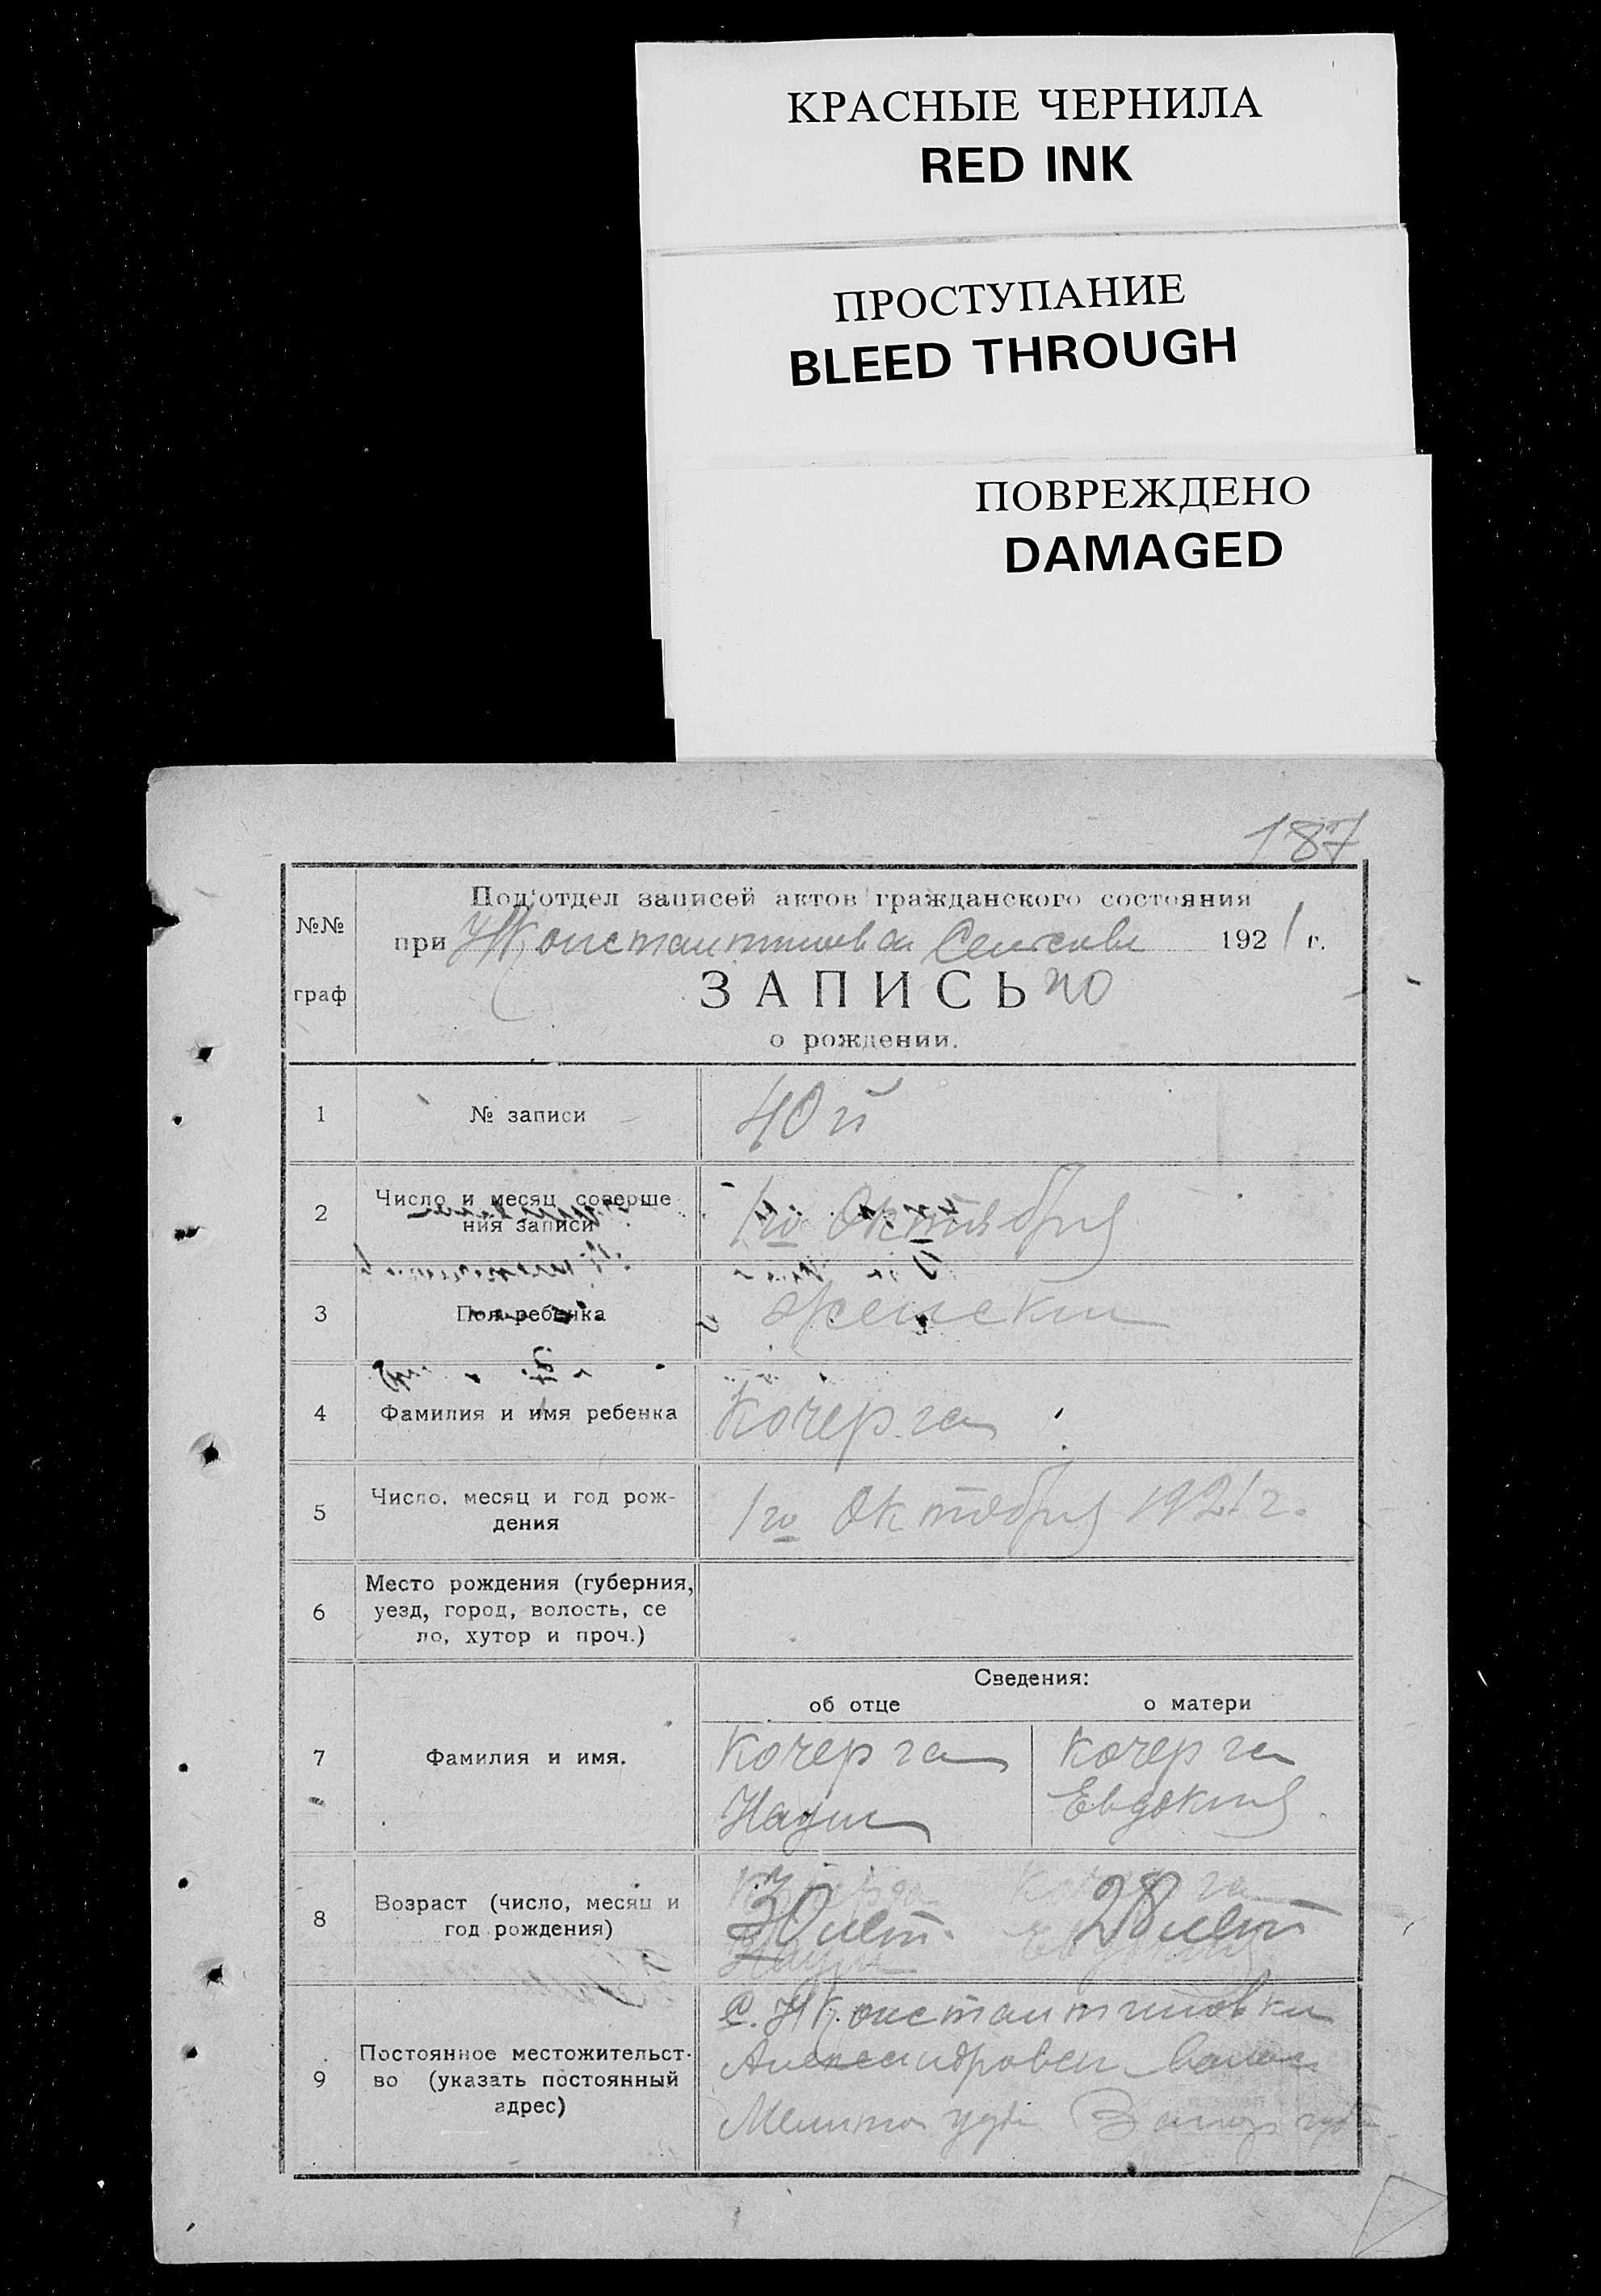 КРАСНЫЕ ЧЕРНИЛА
RED INK
ПРОСТУПАНИЕ
BLEED THROUGH
ПОВРЕЖДЕНО
DAMAGED
187
№№
граф
Под'отдел записей актов гражданского состояния
при 1921 г.
ЗАПИСЬ
о рождении.
1
№ записи
40й
2
Число и месяц соверше
ния записи
1го Октября
3
Пол ребенка
женский
4
Фамилия и имя ребенка
Кочерга
5
Число, месяц и год рож-
дения
1го Октября 1921 г.
6
Место рождения (губерния,
уезд, город, волость, се
ло, хутор и проч.)
Сведения:
об отце о матери
7
Фамилия и имя.
Кочерга Кочерга
Наум Евдокия
8
Возраст (число, месяц и
год рождения)
30 лет 28 лет
9
Постоянное местожительст-
во (указать постоянный
адрес)
С. Н Константиновки